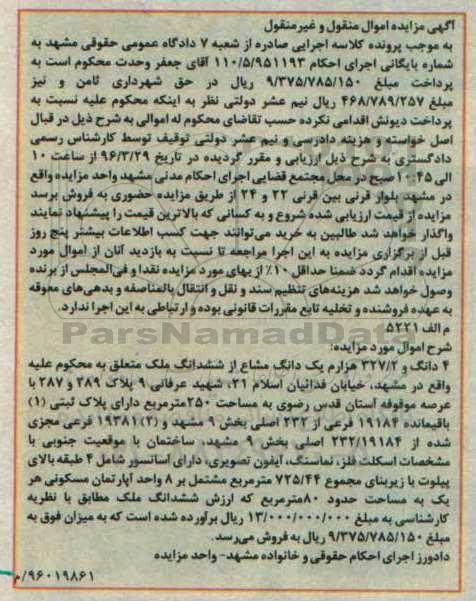 آگهی مزایده اموال منقول و غیرمنقول
به موجب پرونده کلاسه اجرایی صادره از شعبه ۷ دادگاه عمومی حقوقی مشهد به
شماره بایگانی اجرای احکام ۱۱۰/۵/۹۵۱۱۹۳ آقای جعفر وحدت محکوم است به
پرداخت مبلغ ۹/۳۷۵/۷۸۵/۱۵۰ ریال در حق شهرداری ثامن و نیز
مبلغ ۴۶۸/۷۸۹/۲۵۷ ریال نیم عشر دولتی نظر به اینکه محکوم علیه نسبت به
پرداخت دیونش اقدامی نکرده حسب تقاضای محکوم له اموالی به شرح ذیل در قبال
اصل خواسته و هزینه دادرسی و نیم عشر دولتی توقیف توسط کارشناس رسمی
دادگستری به شرح ذیل ارزیابی و مقرر گردیده در تاریخ ۹۶/۳/۲۹ از ساعت ۱۰
الی ۱۰:۴۵ صبح در محل مجتمع قضایی اجرای احکام مدنی مشهد واحد مزایده واقع
در مشهد بلوار قرنی بین قرنی ۲۲ و ۲۴ از طریق مزایده حضوری به فروش برسد
مزایده از قیمت ارزیابی شده شروع و به کسانی که بالاترین قیمت را پیشنهاد نمایند
واگذار خواهد شد طالبین به خرید می‌توانند جهت کسب اطلاعات بیشتر پنج روز
قبل از برگزاری مزایده به این اجرا مراجعه تا نسبت به بازدید آنان از اموال مورد
مزایده اقدام گردد ضمنا حداقل ۱۰٪ از بهای مورد مزایده نقدا و فی‌المجلس از برنده
وصول خواهد شد هزینه‌های تنظیم سند و نقل و انتقال بالمناصفه و بدهی‌های معوقه
به عهده فروشنده و تخلیه تابع مقررات قانونی بوده و ارتباطی به این اجرا ندارد.
م الف ۵۲۲۱
ParsNamadData
شرح اموال مورد مزایده:
۴ دانگ و ۳۲۷/۲ هزارم یک دانگ مشاع از ششدانگ ملک متعلق به محکوم علیه
واقع در مشهد، خیابان فدائیان اسلام ۲۱، شهید عرفانی ۹ پلاک ۲۸۹ و ۲۸۷ با
عرصه موقوفه آستان قدس رضوی به مساحت ۲۵۰ مترمربع دارای پلاک ثبتی (۱)
باقیمانده ۱۹۱۸۴ فرعی از ۲۳۲ اصلی بخش ۹ مشهد و (۲) ۱۹۳۸۱ فرعی مجزی
شده از ۲۳۲/۱۹۱۸۴ اصلی بخش ۹ مشهد، ساختمان با موقعیت جنوبی با
مشخصات اسکلت فلز، نماسنگ، آیفون تصویری، دارای آسانسور شامل ۴ طبقه بالای
پیلوت با زیربنای مجموع ۷۲۵/۴۴ مترمربع مشتمل بر ۸ واحد آپارتمان مسکونی هر
یک به مساحت حدود ۸۰ مترمربع که ارزش ششدانگ ملک مطابق با نظریه
کارشناسی به مبلغ ۱۳/۰۰۰/۰۰۰/۰۰۰ ریال برآورده شده است که به میزان فوق به
مبلغ ۹/۳۷۵/۷۸۵/۱۵۰ ریال به فروش می‌رسد.
دادورز اجرای احکام حقوقی و خانواده مشهد- واحد مزایده
۹۶۰۱۹۸۶۱/م